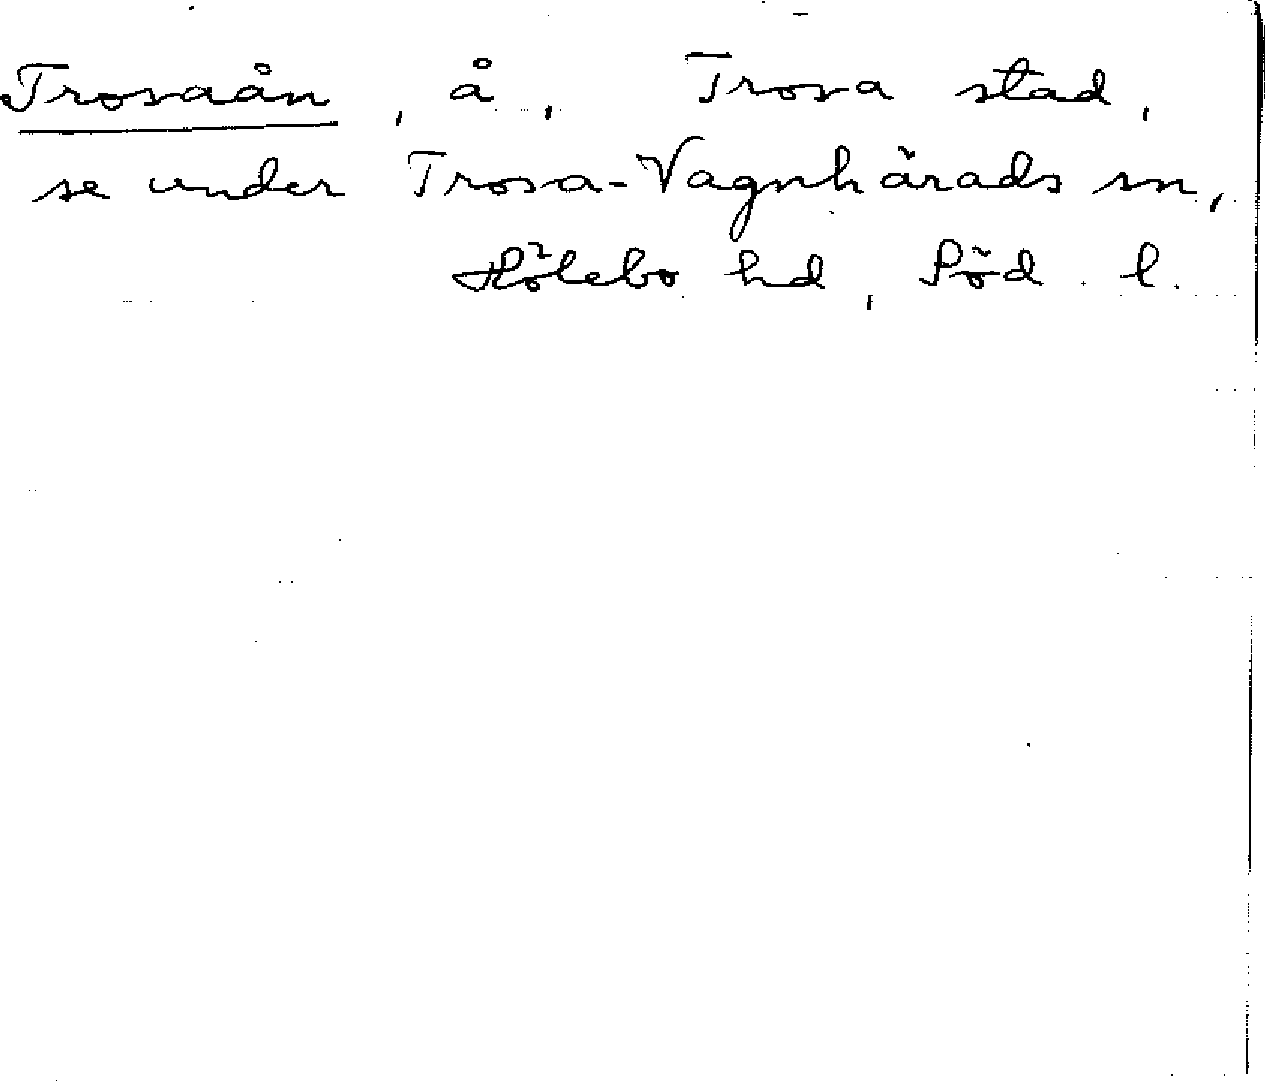 Trosaån, å, Trosa stad,
se under Trosa-Vagnhärads sn,
Hölebo hd, Söd. l.